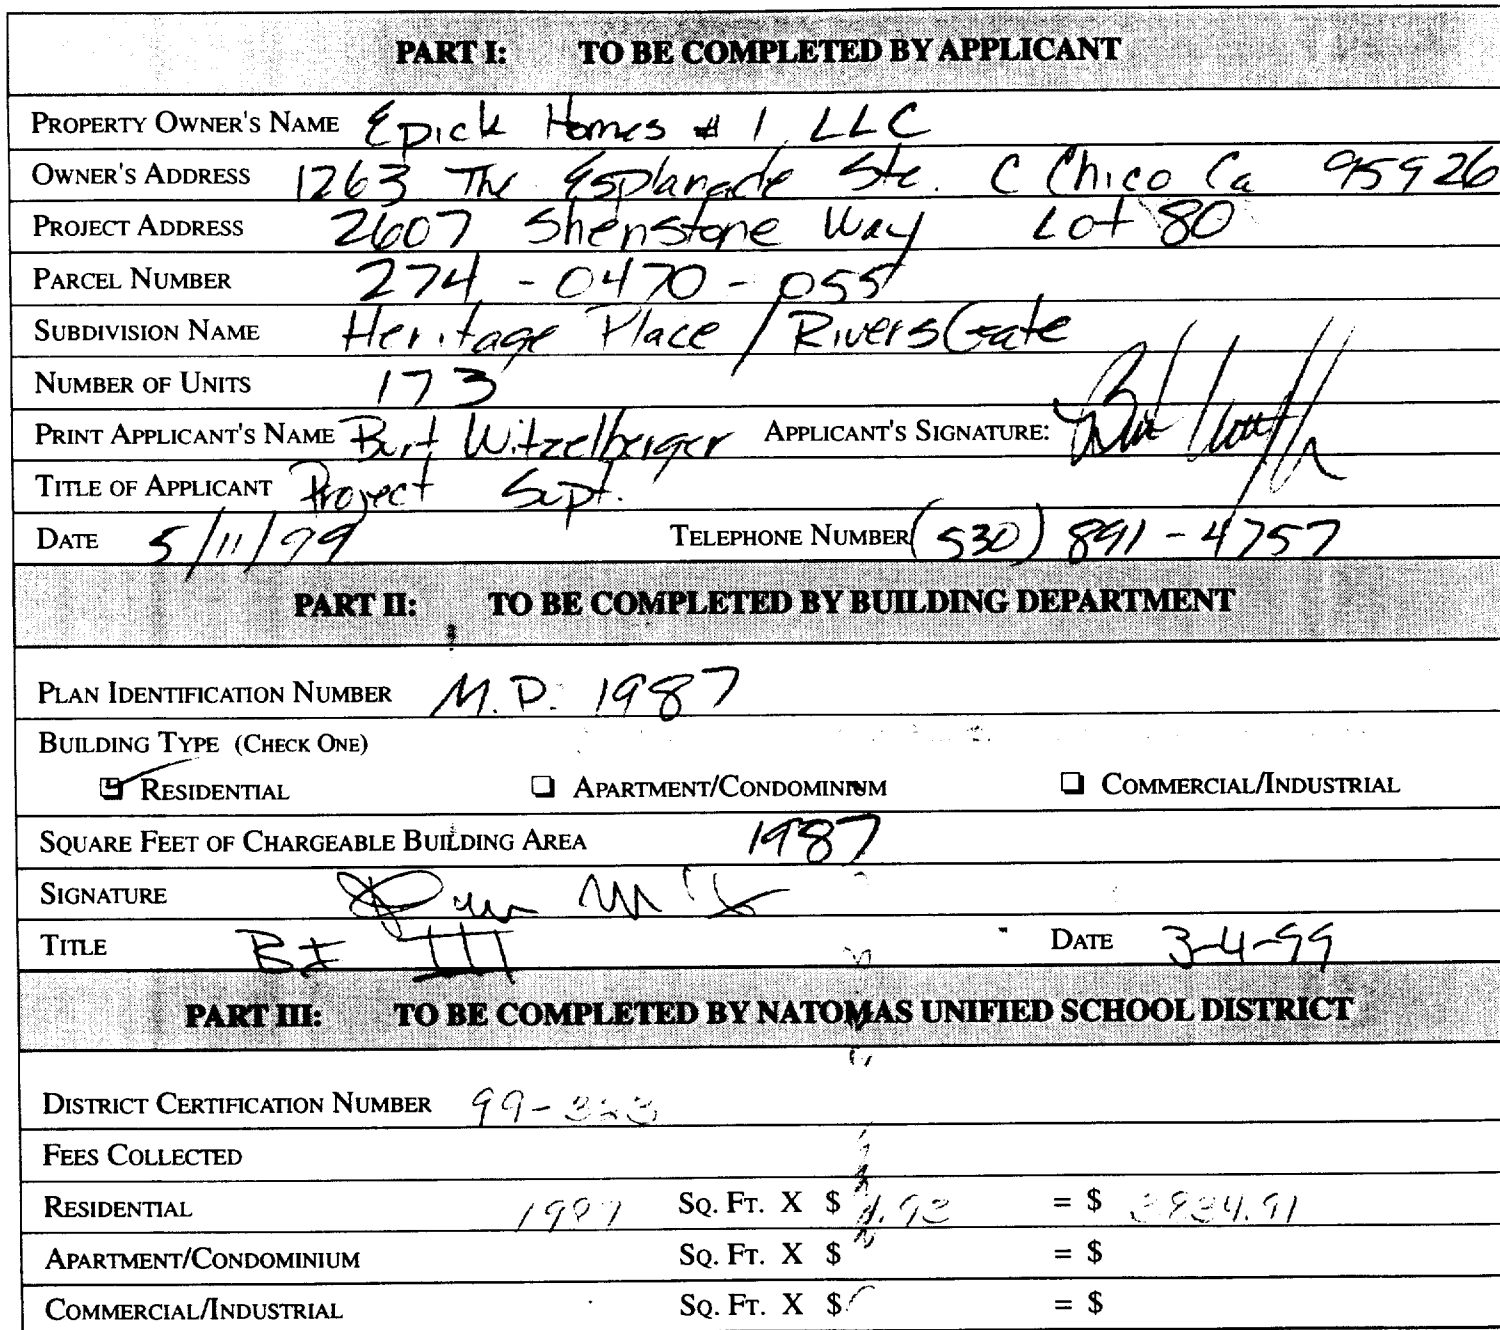 PART I: TO BE COMPLETED BY APPLICANT
PROPERTY OWNER'S NAME Epick Homes # 1 LLC
OWNER'S ADDRESS 1263 The Esplanade Ste. C Chico Ca 95926
PROJECT ADDRESS 2607 Shenstone Way Lot 80
PARCEL NUMBER 274-0470-055
SUBDIVISION NAME Heritage Place / RiversGate
NUMBER OF UNITS 173
PRINT APPLICANT'S NAME Burt Witzelberger APPLICANT'S SIGNATURE:
TITLE OF APPLICANT Project Supt.
DATE 5/11/99 TELEPHONE NUMBER (530) 891-4757
PART II: TO BE COMPLETED BY BUILDING DEPARTMENT
PLAN IDENTIFICATION NUMBER M.P. 1987
BUILDING TYPE (CHECK ONE)
RESIDENTIAL APARTMENT/CONDOMINIUM COMMERCIAL/INDUSTRIAL
SQUARE FEET OF CHARGEABLE BUILDING AREA 1987
SIGNATURE
TITLE BI III DATE 3-4-99
PART III: TO BE COMPLETED BY NATOMAS UNIFIED SCHOOL DISTRICT
DISTRICT CERTIFICATION NUMBER 99-323
FEES COLLECTED
RESIDENTIAL 1987 SQ. FT. X $ = $
APARTMENT/CONDOMINIUM SQ. FT. X $ = $
COMMERCIAL/INDUSTRIAL SQ. FT. X $ = $